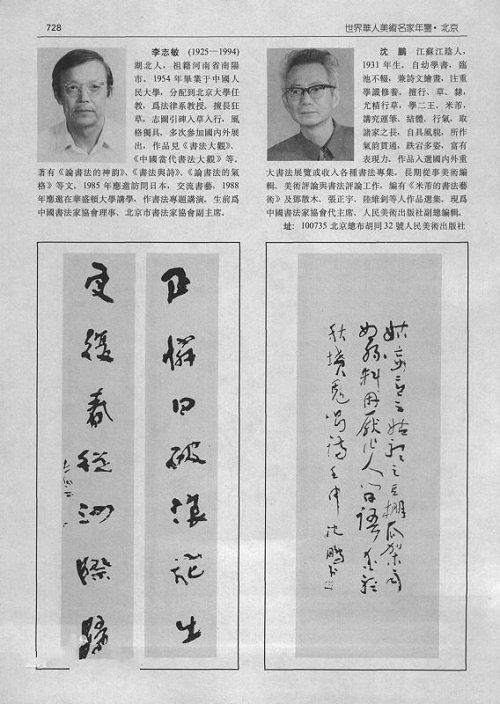 728
世界華人美術名家年鑒·北京
李志敏 (1925—1994)
湖北人，祖籍河南省南陽
市。1954年畢業于中國人
民大學，分配到北京大學任
教，爲法律系教授。擅長狂
草。志圖引碑入草入行，風
格獨具，多次參加國內外展
出，作品見《書法大觀》、
《中國當代書法大觀》等。
著有《論書法的神韵》、《書法與詩》、《論書法的氣
格》等文。1985年應邀訪問日本，交流書藝，1988
年應邀在華盛頓大學講學，作書法專題講演。生前爲
中國書法家協會理事、北京市書法家協會副主席。
沈 鵬 江蘇江陰人，
1931年生。自幼學書，臨
池不輟，兼詩文繪畫，注重
學識修養。擅行、草、隸，
尤精行草，學二王、米芾，
講究運筆、結體、行氣，取
諸家之長，自具風貌，所作
氣韵貫通，跌宕多姿，富有
表現力。作品入選國內外重
大書法展覽或收入各種書法專集。長期從事美術編
輯、美術評論與書法評論工作，編有《米芾的書法藝
術》及鄧散木、張正宇、陸維釗等人作品選集。現爲
中國書法家協會代主席、人民美術出版社副總編輯。
址：100735北京總布胡同32號人民美術出版社
正憐日破浪花出
更復春從沙際歸
姑妄言之姑聽之豆棚瓜架雨
如絲料應厭作人間語愛聽
秋墳鬼唱詩 壬申 沈鵬書